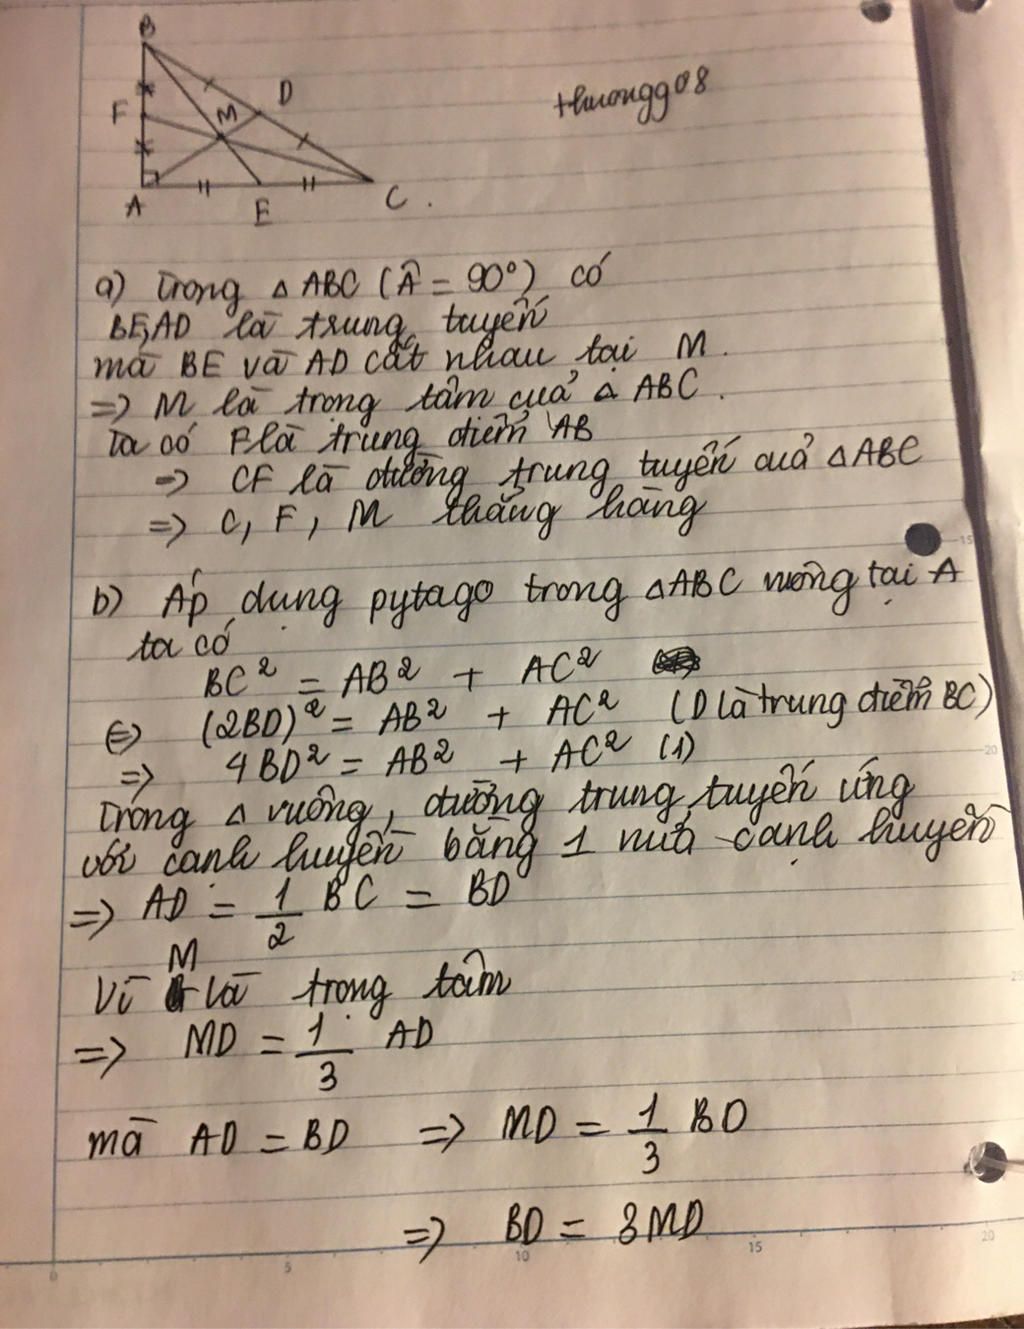 B
thuongg08
D
F
M
A
E
C.
a) Trong △ ABC (Â = 90°) có
BE, AD là trung tuyến
mà BE và AD cắt nhau tại M.
=> M là trọng tâm cuả △ ABC.
Ta có F là trung điểm AB
=> CF là đường trung tuyến cuả △ABC
=> C, F, M thẳng hàng
b) Áp dụng pytago trong △ABC vuông tại A
ta có
BC² = AB² + AC²
<=> (2BD)² = AB² + AC² (D là trung điểm BC)
=> 4BD² = AB² + AC² (1)
Trong △ vuông, đường trung tuyến ứng
với cạnh huyền bằng 1 nửa cạnh huyền
=> AD = 1/2 BC = BD
Vì M là trọng tâm
=> MD = 1/3 AD
mà AD = BD => MD = 1/3 BD
=> BD = 3MD
15
20
25
0
5
10
15
20